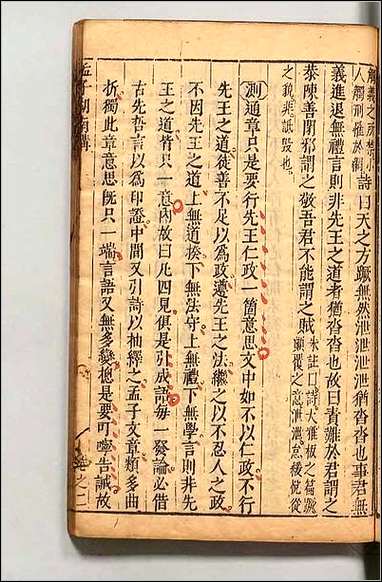 詩曰天之方蹶無然泄泄泄泄猶沓沓也事君無
義進退無禮言則非先王之道者猶沓沓也故曰責難於君謂之
恭陳善閉邪謂之敬吾君不能謂之賊
朱註曰詩大雅板之篇蹶
顛覆之意泄泄怠緩悅從
之貌非詆毀也
測通章只是要行先王仁政一箇意思文中如不以仁政不行
先王之道徒善不足以為政遵先王之法繼之以不忍人之政
不因先王之道上無道揆下無法守上無禮下無學言則非先
王之道皆只一意內故曰凡四見俱是引成語每一發論必借
古先哲言以為印證中間又引詩以紬繹之孟子文章類多曲
折獨此章意思旣只一端言語又無多變總是要叮嚀告誡故